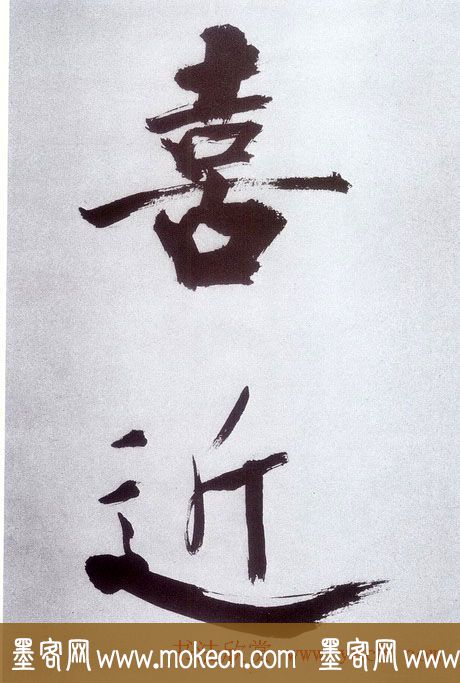 喜
近
墨客网 www.mokecn.com 墨客网 www.mokecn.com